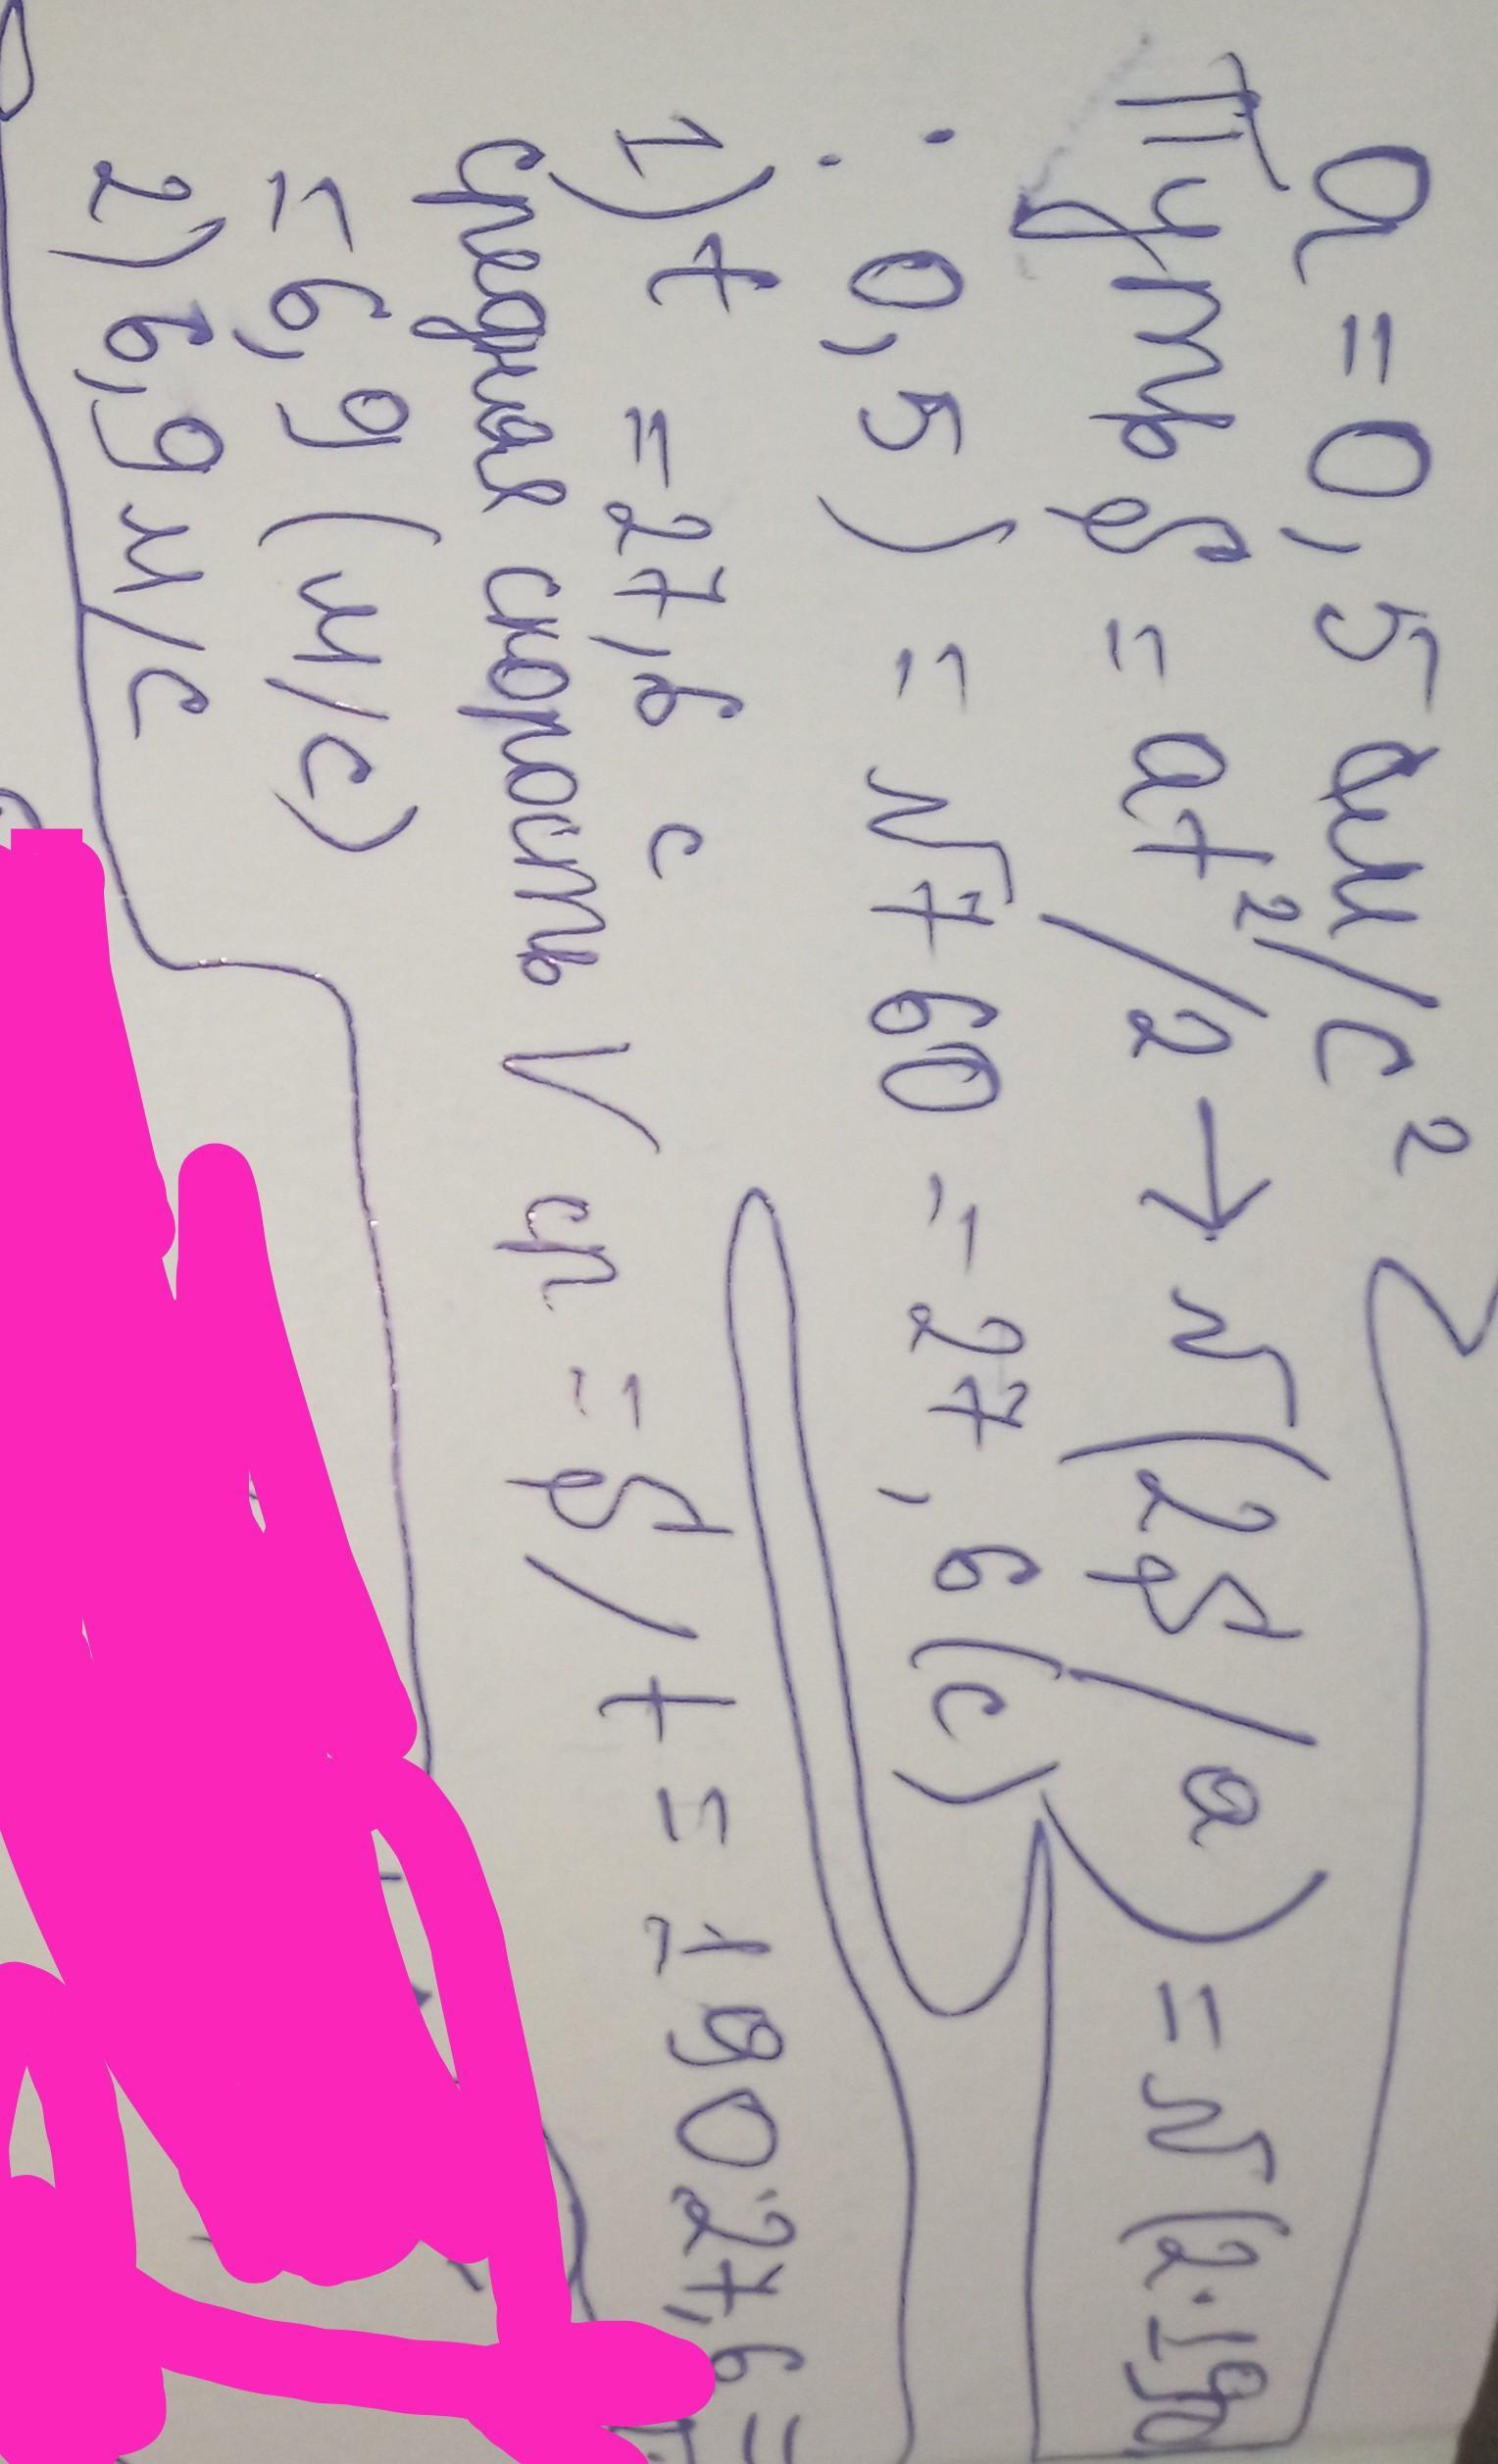 a = 0,5 дм/с²
Путь S = at²/2 → √(2S/a) = √(2·190
: 0,5) = √760 = 27,6 (с)
1) t = 27,6 с
средняя скорость V ср = S/t = 190:27,6 =
= 6,9 (м/с)
2) 6,9 м/с